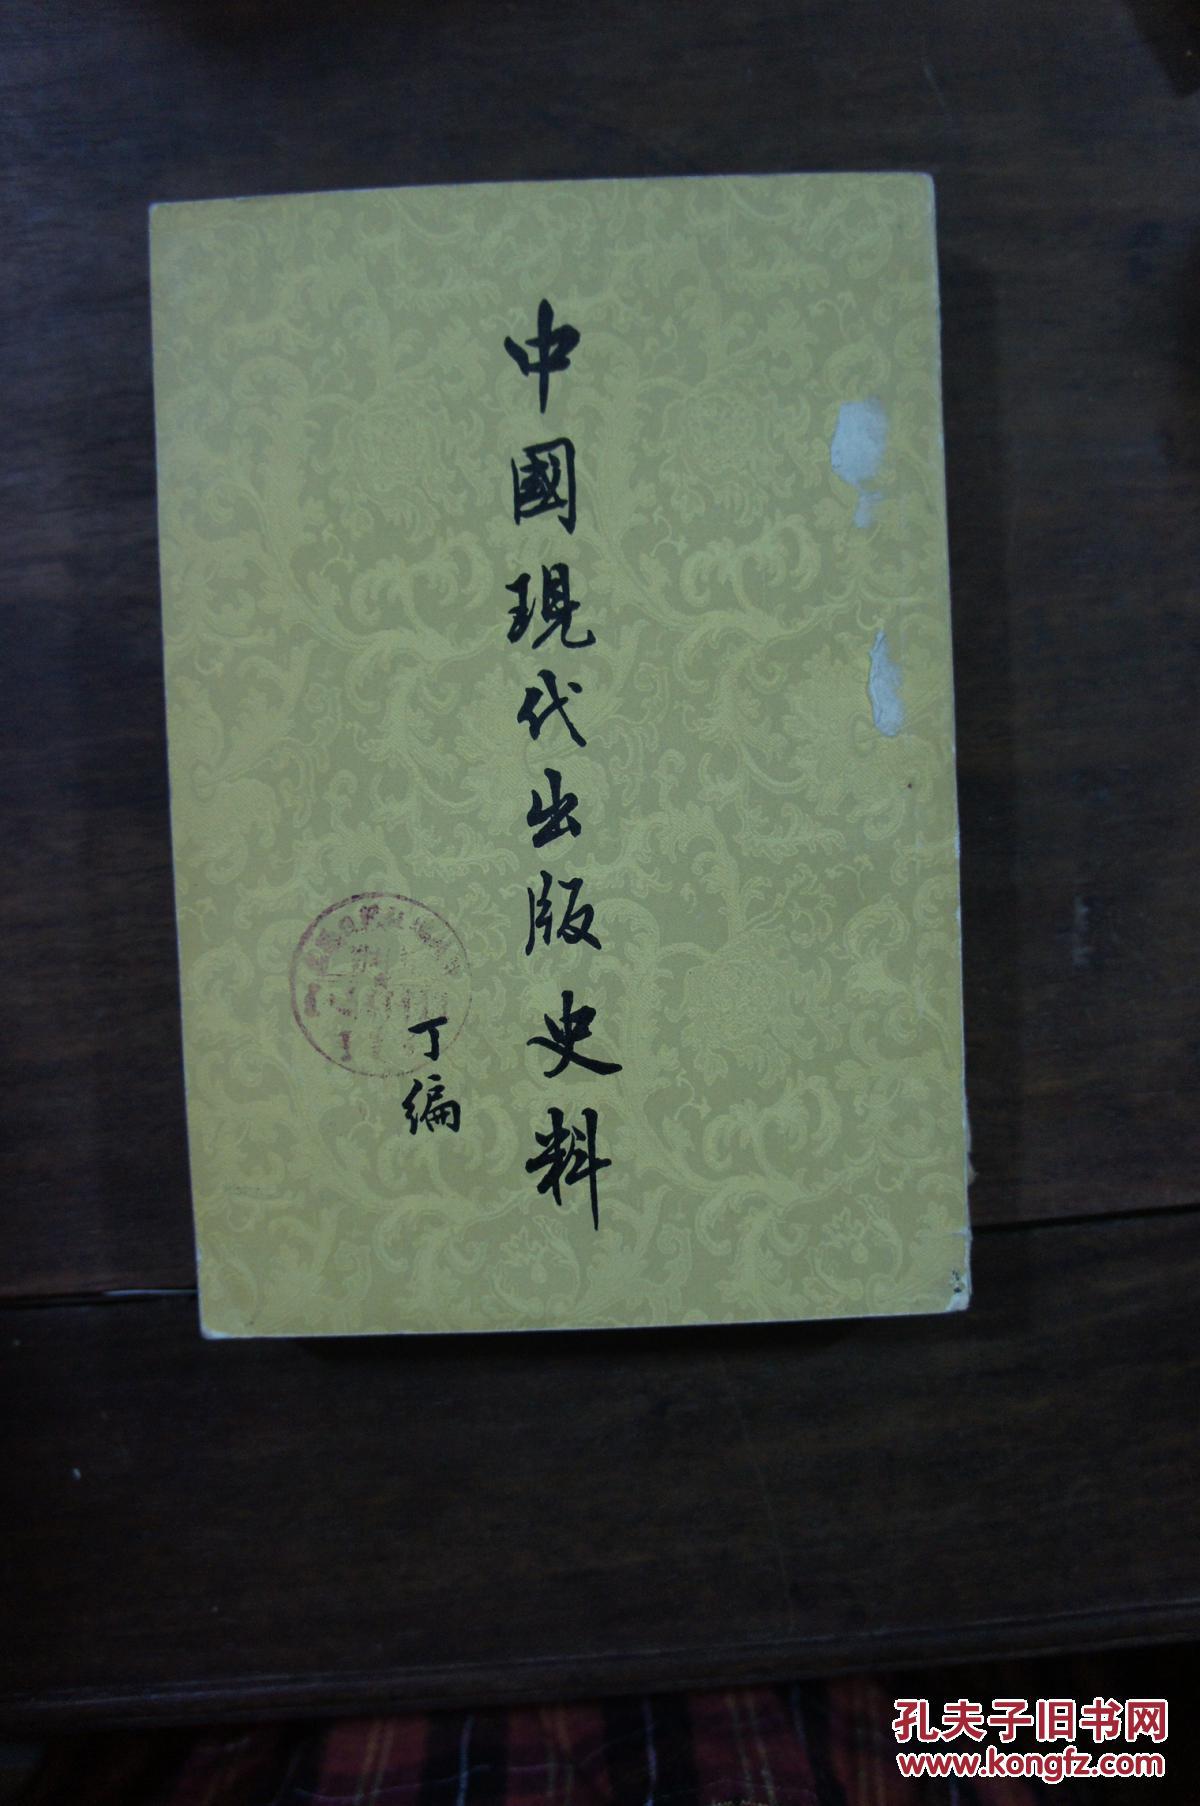 中國現代出版史料
丁编
孔夫子旧书网
www.kongfz.com